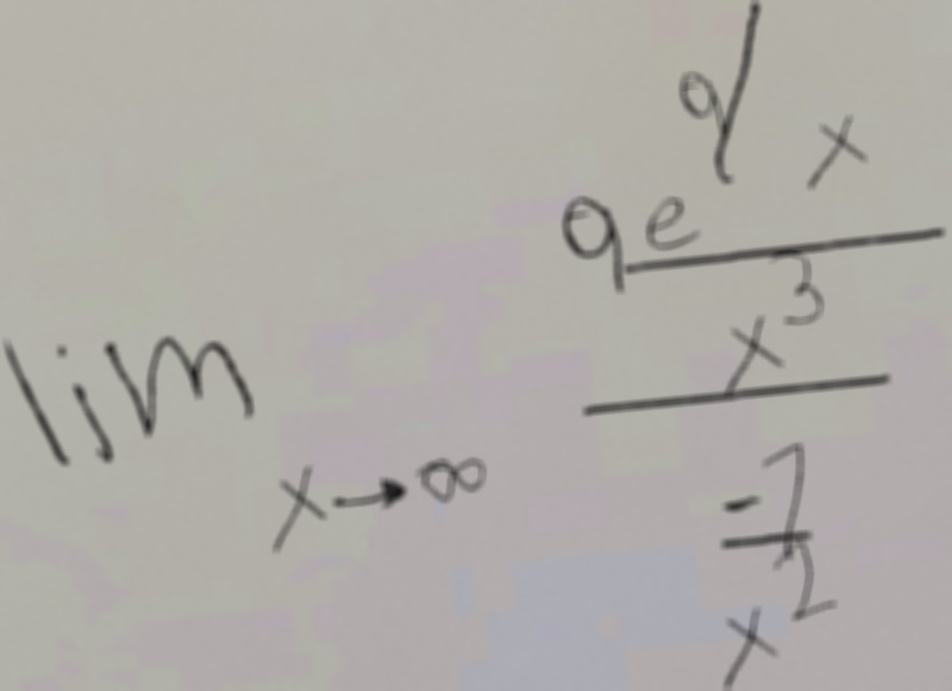 lim x→∞ \frac{\frac{9e^{9/x}}{x^3}}{\frac{-1}{x^2}}